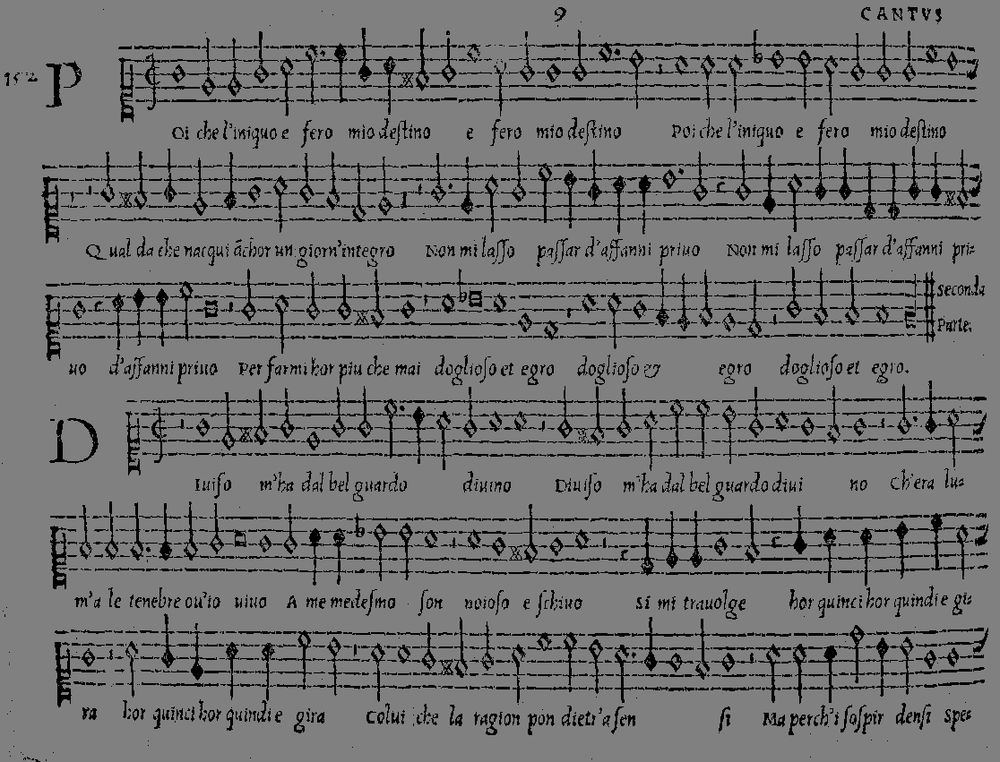 9 CANTVS
1572
P
Oi che l'iniquo e fero mio destino e fero mio destino Poi che l'iniquo e fero mio destino
Q ual da che nacqui ãchor un giorn'integro Non mi lasso passar d'affanni priuo Non mi lasso passar d'affanni pri=
uo d'affanni priuo Per farmi hor piu che mai doglioso et egro doglioso & egro doglioso et egro.
Seconda
Parte.
D
Iuiso m'ha dal bel guardo diuino Diuiso m'ha dal bel guardo diui no Ch'era lu=
m'a le tenebre ou'io uiuo A me medesmo son noioso e schiuo Si mi trauolge hor quinci hor quindi e gi=
ra hor quinci hor quindi e gira Colui che la ragion pon dietr'a sen si Ma perch'i sospir densi Spes=